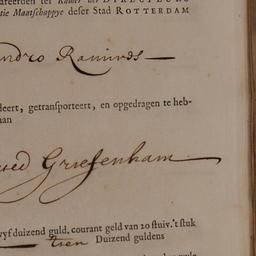 Kamer der DIRECTEUREN
tie Maatschappye deser Stad ROTTERDAM
ndro Ramires
deert, getransporteert, en opgedragen te heb-
aan
Griesenham
vyf duizend guld. courant geld van 20 stuiv. 't stuk
tien Duizend guldens